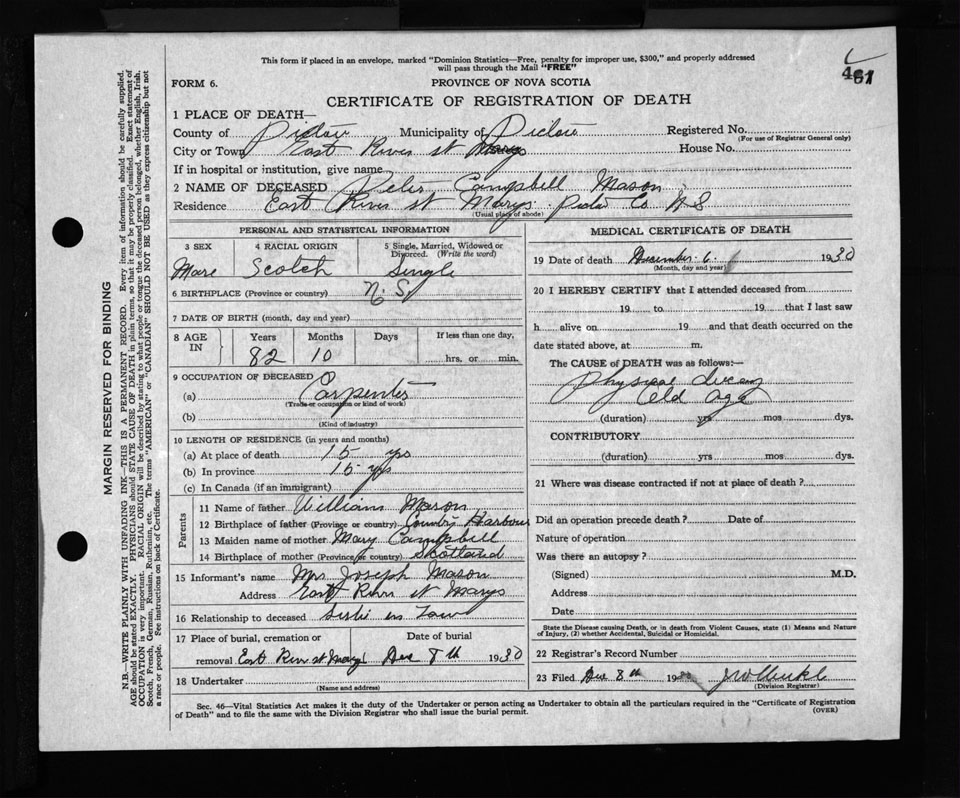 This form if placed in an envelope, marked "Dominion Statistics—Free, penalty for improper use, $300," and properly addressed
will pass through the Mail "FREE"
461
FORM 6.
PROVINCE OF NOVA SCOTIA
CERTIFICATE OF REGISTRATION OF DEATH
1 PLACE OF DEATH—
County of Pictou Municipality of Pictou Registered No.
(For use of Registrar General only)
City or Town East River st Marys House No.
If in hospital or institution, give name
2 NAME OF DECEASED Peter Campbell Mason
Residence East River st Marys Pictou Co N S
(Usual place of abode)
PERSONAL AND STATISTICAL INFORMATION
3 SEX 4 RACIAL ORIGIN 5 Single, Married, Widowed or Divorced. (Write the word)
Male Scotch Single
6 BIRTHPLACE (Province or country) N. S.
7 DATE OF BIRTH (month, day and year)
8 AGE IN Years Months Days If less than one day,
82 10 hrs. or min.
9 OCCUPATION OF DECEASED
(a) Carpenter
(Trade or occupation or kind of work)
(b)
(Kind of industry)
10 LENGTH OF RESIDENCE (in years and months)
(a) At place of death 15 yrs
(b) In province 15 yrs
(c) In Canada (if an immigrant)
Parents
11 Name of father William Mason
12 Birthplace of father (Province or country) Country Harbour
13 Maiden name of mother Mary Campbell
14 Birthplace of mother (Province or country) Scotland
15 Informant's name Mrs Joseph Mason
Address East River st Marys
16 Relationship to deceased Sister in Law
17 Place of burial, cremation or Date of burial
removal East River st Marys Dec 8th 1930
18 Undertaker
(Name and address)
MEDICAL CERTIFICATE OF DEATH
19 Date of death December 6 1930
(Month, day and year)
20 I HEREBY CERTIFY that I attended deceased from
19 to 19 that I last saw
h alive on 19 and that death occurred on the
date stated above, at m.
The CAUSE of DEATH was as follows:—
Physical decay
Old Age
(duration) yrs mos dys.
CONTRIBUTORY
(duration) yrs mos dys.
21 Where was disease contracted if not at place of death?
Did an operation precede death? Date of
Nature of operation
Was there an autopsy?
(Signed) M.D.
Address
Date
State the Disease causing Death, or in death from Violent Causes, state (1) Means and Nature
of Injury, (2) whether Accidental, Suicidal or Homicidal.
22 Registrar's Record Number
23 Filed Dec 8th 1930
(Division Registrar)
Sec. 46—Vital Statistics Act makes it the duty of the Undertaker or person acting as Undertaker to obtain all the particulars required in the "Certificate of Registration
of Death" and to file the same with the Division Registrar who shall issue the burial permit.
(OVER)
MARGIN RESERVED FOR BINDING
N.B.—WRITE PLAINLY WITH UNFADING INK—THIS IS A PERMANENT RECORD. Every item of information should be carefully supplied.
AGE should be stated EXACTLY. PHYSICIANS should STATE CAUSE OF DEATH in plain terms, so that it may be properly classified. Exact statement of
OCCUPATION is very important. RACIAL ORIGIN will be described by stating to what people or tongue the deceased person belonged, whether English, Irish,
Scotch, French, German, Russian, Ruthenian, etc. The terms "AMERICAN" or "CANADIAN" SHOULD NOT BE USED as they express citizenship but not
a race or people. See instructions on back of Certificate.